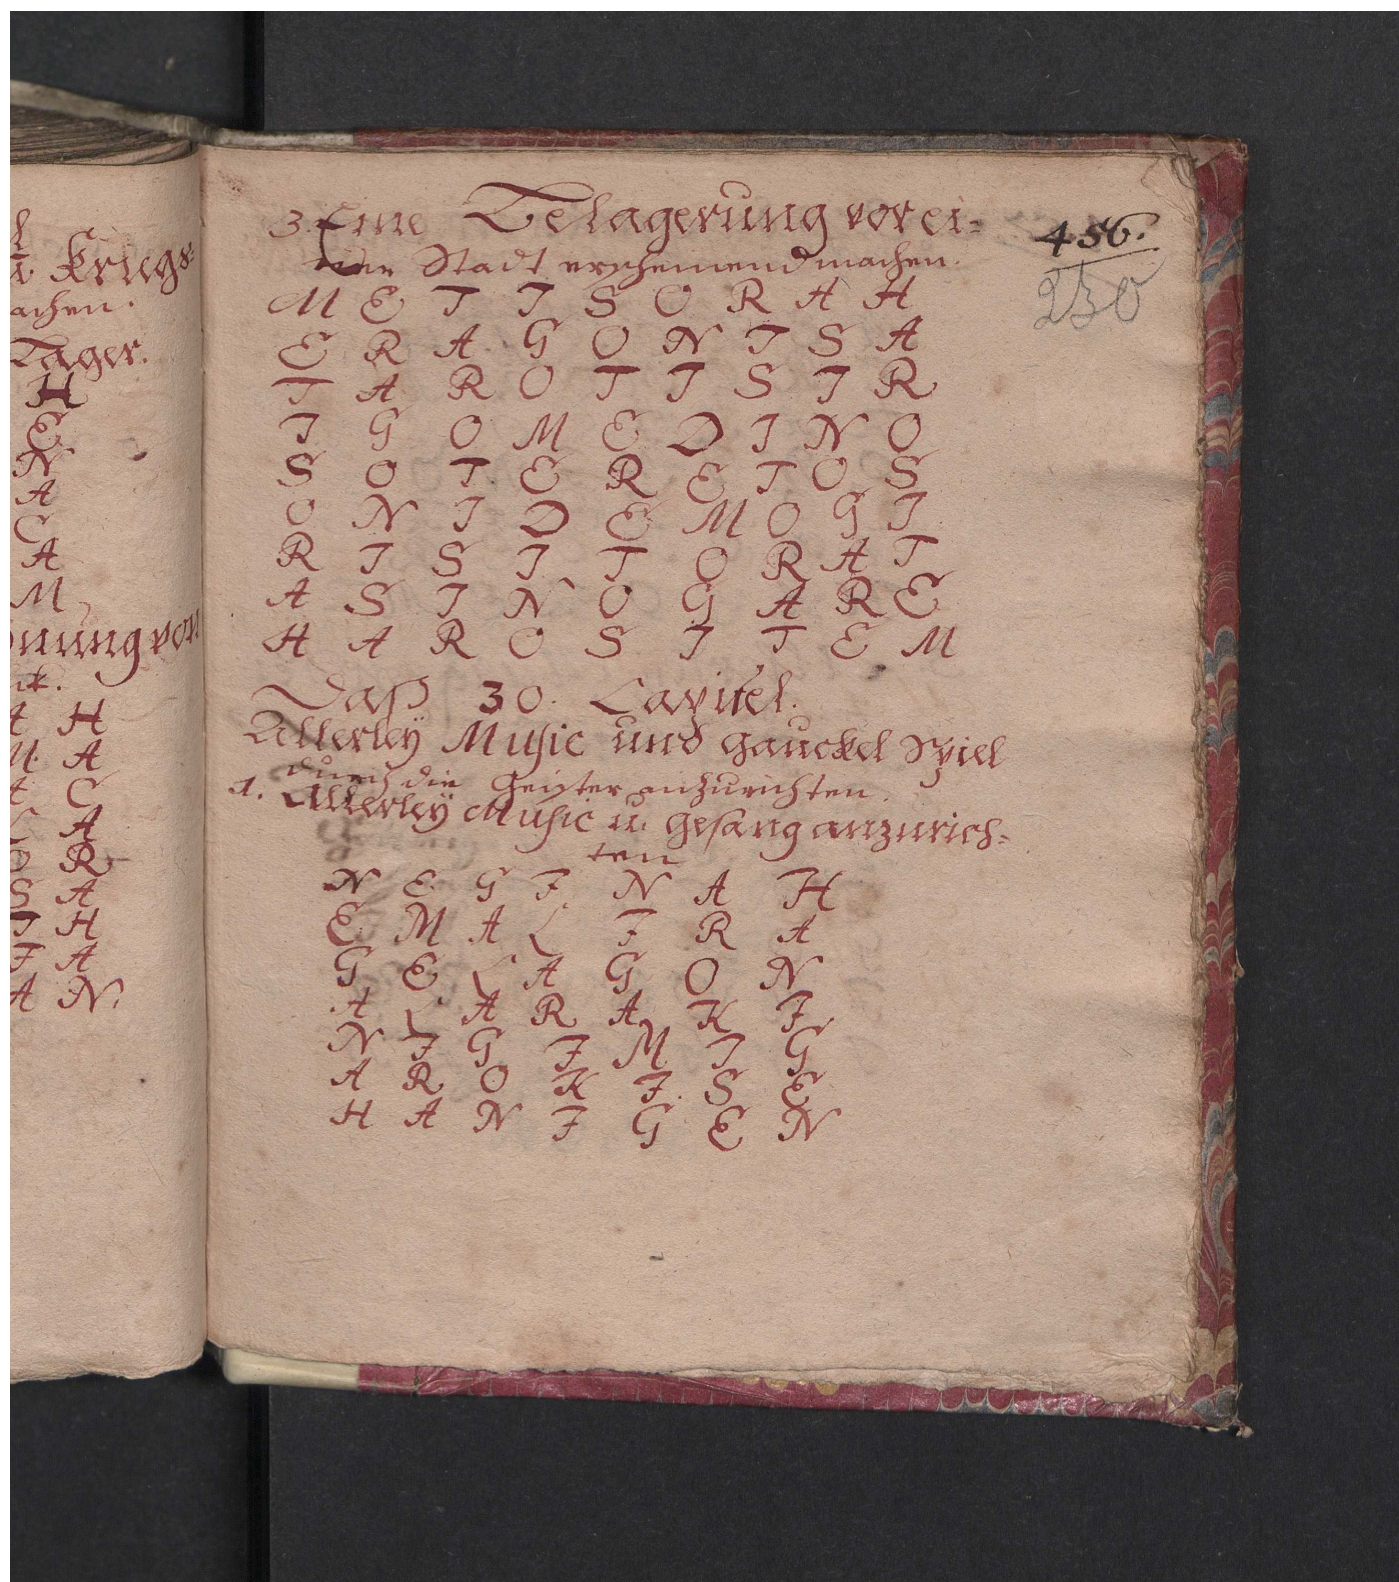 l
u. Kriegs=
achen.
Läger.
H
E
N
A
C
A
M
nung von
A H
M. A
A C
L A
O R
S A
I H
I A
A N.
456.
230
3. Eine Belagerung vor ei=
ner Stadt erscheinend machen.
M E T I S O R A H
E R A G O N I S A
T A R O T I S I R
I G O M E D I N O
S O T E R E T O S
O N I D E M O G I
R I S I T O R A T
A S I N O G A R E
H A R O S I T E M
Daß 30. Capitel.
Allerley Music und Gauckel Spiel
durch die Geister anzurichten.
1. Allerley Music u. Gesang anzurich=
ten
N E G I N A H
E M A L I R A
G E L A G O N
A L A R A K I
N I G I M I G
A R O K I S E
H A N I G E N